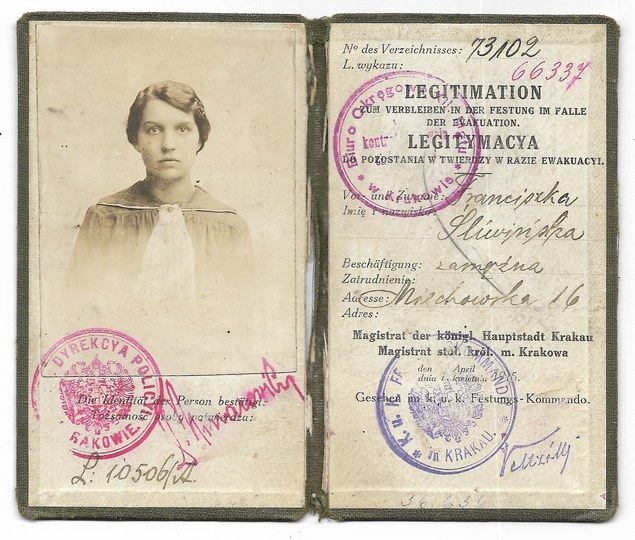 DYREKCYA POLI
KRAKOWIE
Die Identität der Person bestätigt:
Tożsamość osoby potwierdza:
L: 10506/A.
Nº des Verzeichnisses: 73102
L. wykazu: 66337
LEGITIMATION
ZUM VERBLEIBEN IN DER FESTUNG IM FALLE
DER EVAKUATION.
LEGITYMACYA
DO POZOSTANIA W TWIERDZY W RAZIE EWAKUACYI.
Biuro Okręgowe
kontr
w Krakowie
Vor- und Zuname: Franciszka
Imię i nazwisko: Śliwińska
Beschäftigung: zamężna
Zatrudnienie:
Adresse: Miechowska 16
Adres:
Magistrat der königl. Hauptstadt Krakau
Magistrat stoł. król. m. Krakowa
den April
dnia kwietnia
Gesehen im k. u. k. Festungs-Kommando.
K. u. K. FE KOMMANDO
in KRAKAU.